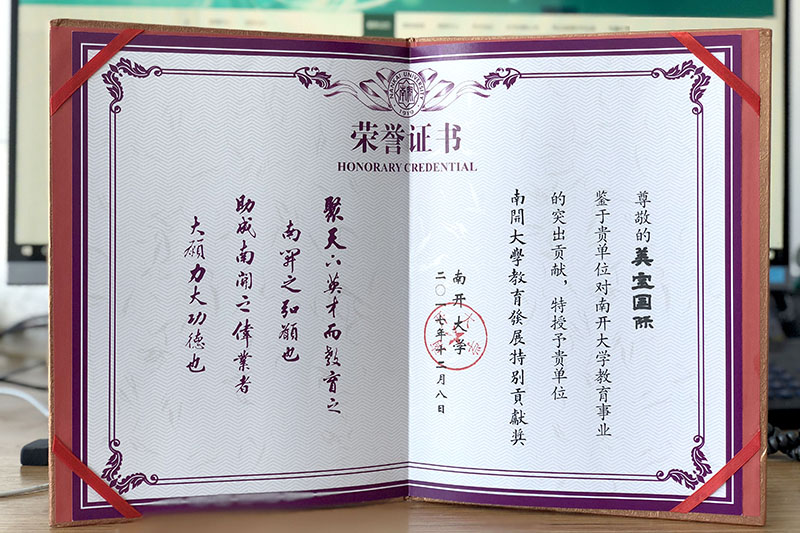 NANKAI UNIVERSITY
1919
荣誉证书
HONORARY CREDENTIAL
尊敬的美宝国际
鉴于贵单位对南开大学教育事业
的突出贡献，特授予贵单位
南開大學教育發展特别貢獻奖
南开大学
二〇一七年十二月八日
聚天下英才而教育之
南開之弘願也
助成南開之偉業者
大願力大功德也